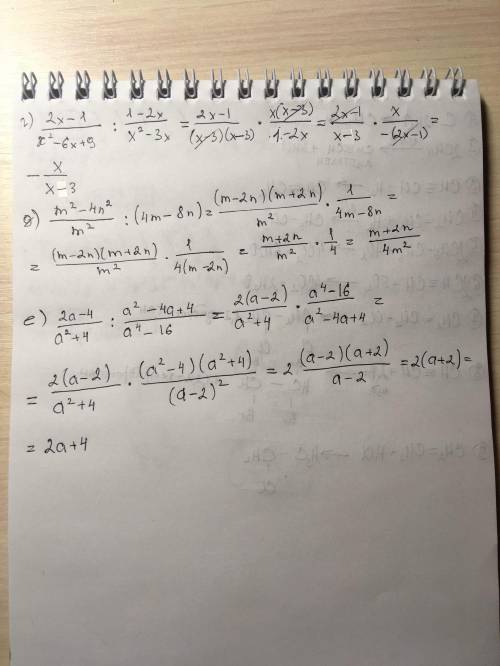 г) (2x-1)/(x²-6x+9) : (1-2x)/(x²-3x) = (2x-1)/((x-3)(x-3)) · x(x-3)/(1-2x) = (2x-1)/(x-3) · x/(-(2x-1)) =
- x/(x-3)
д) (m²-4n²)/m² : (4m-8n) = ((m-2n)(m+2n))/m² · 1/(4m-8n) =
= ((m-2n)(m+2n))/m² · 1/(4(m-2n)) = (m+2n)/m² · 1/4 = (m+2n)/(4m²)
е) (2a-4)/(a²+4) : (a²-4a+4)/(a⁴-16) = 2(a-2)/(a²+4) · (a⁴-16)/(a²-4a+4) =
= 2(a-2)/(a²+4) · ((a²-4)(a²+4))/(a-2)² = 2 ((a-2)(a+2))/(a-2) = 2(a+2) =
= 2a+4